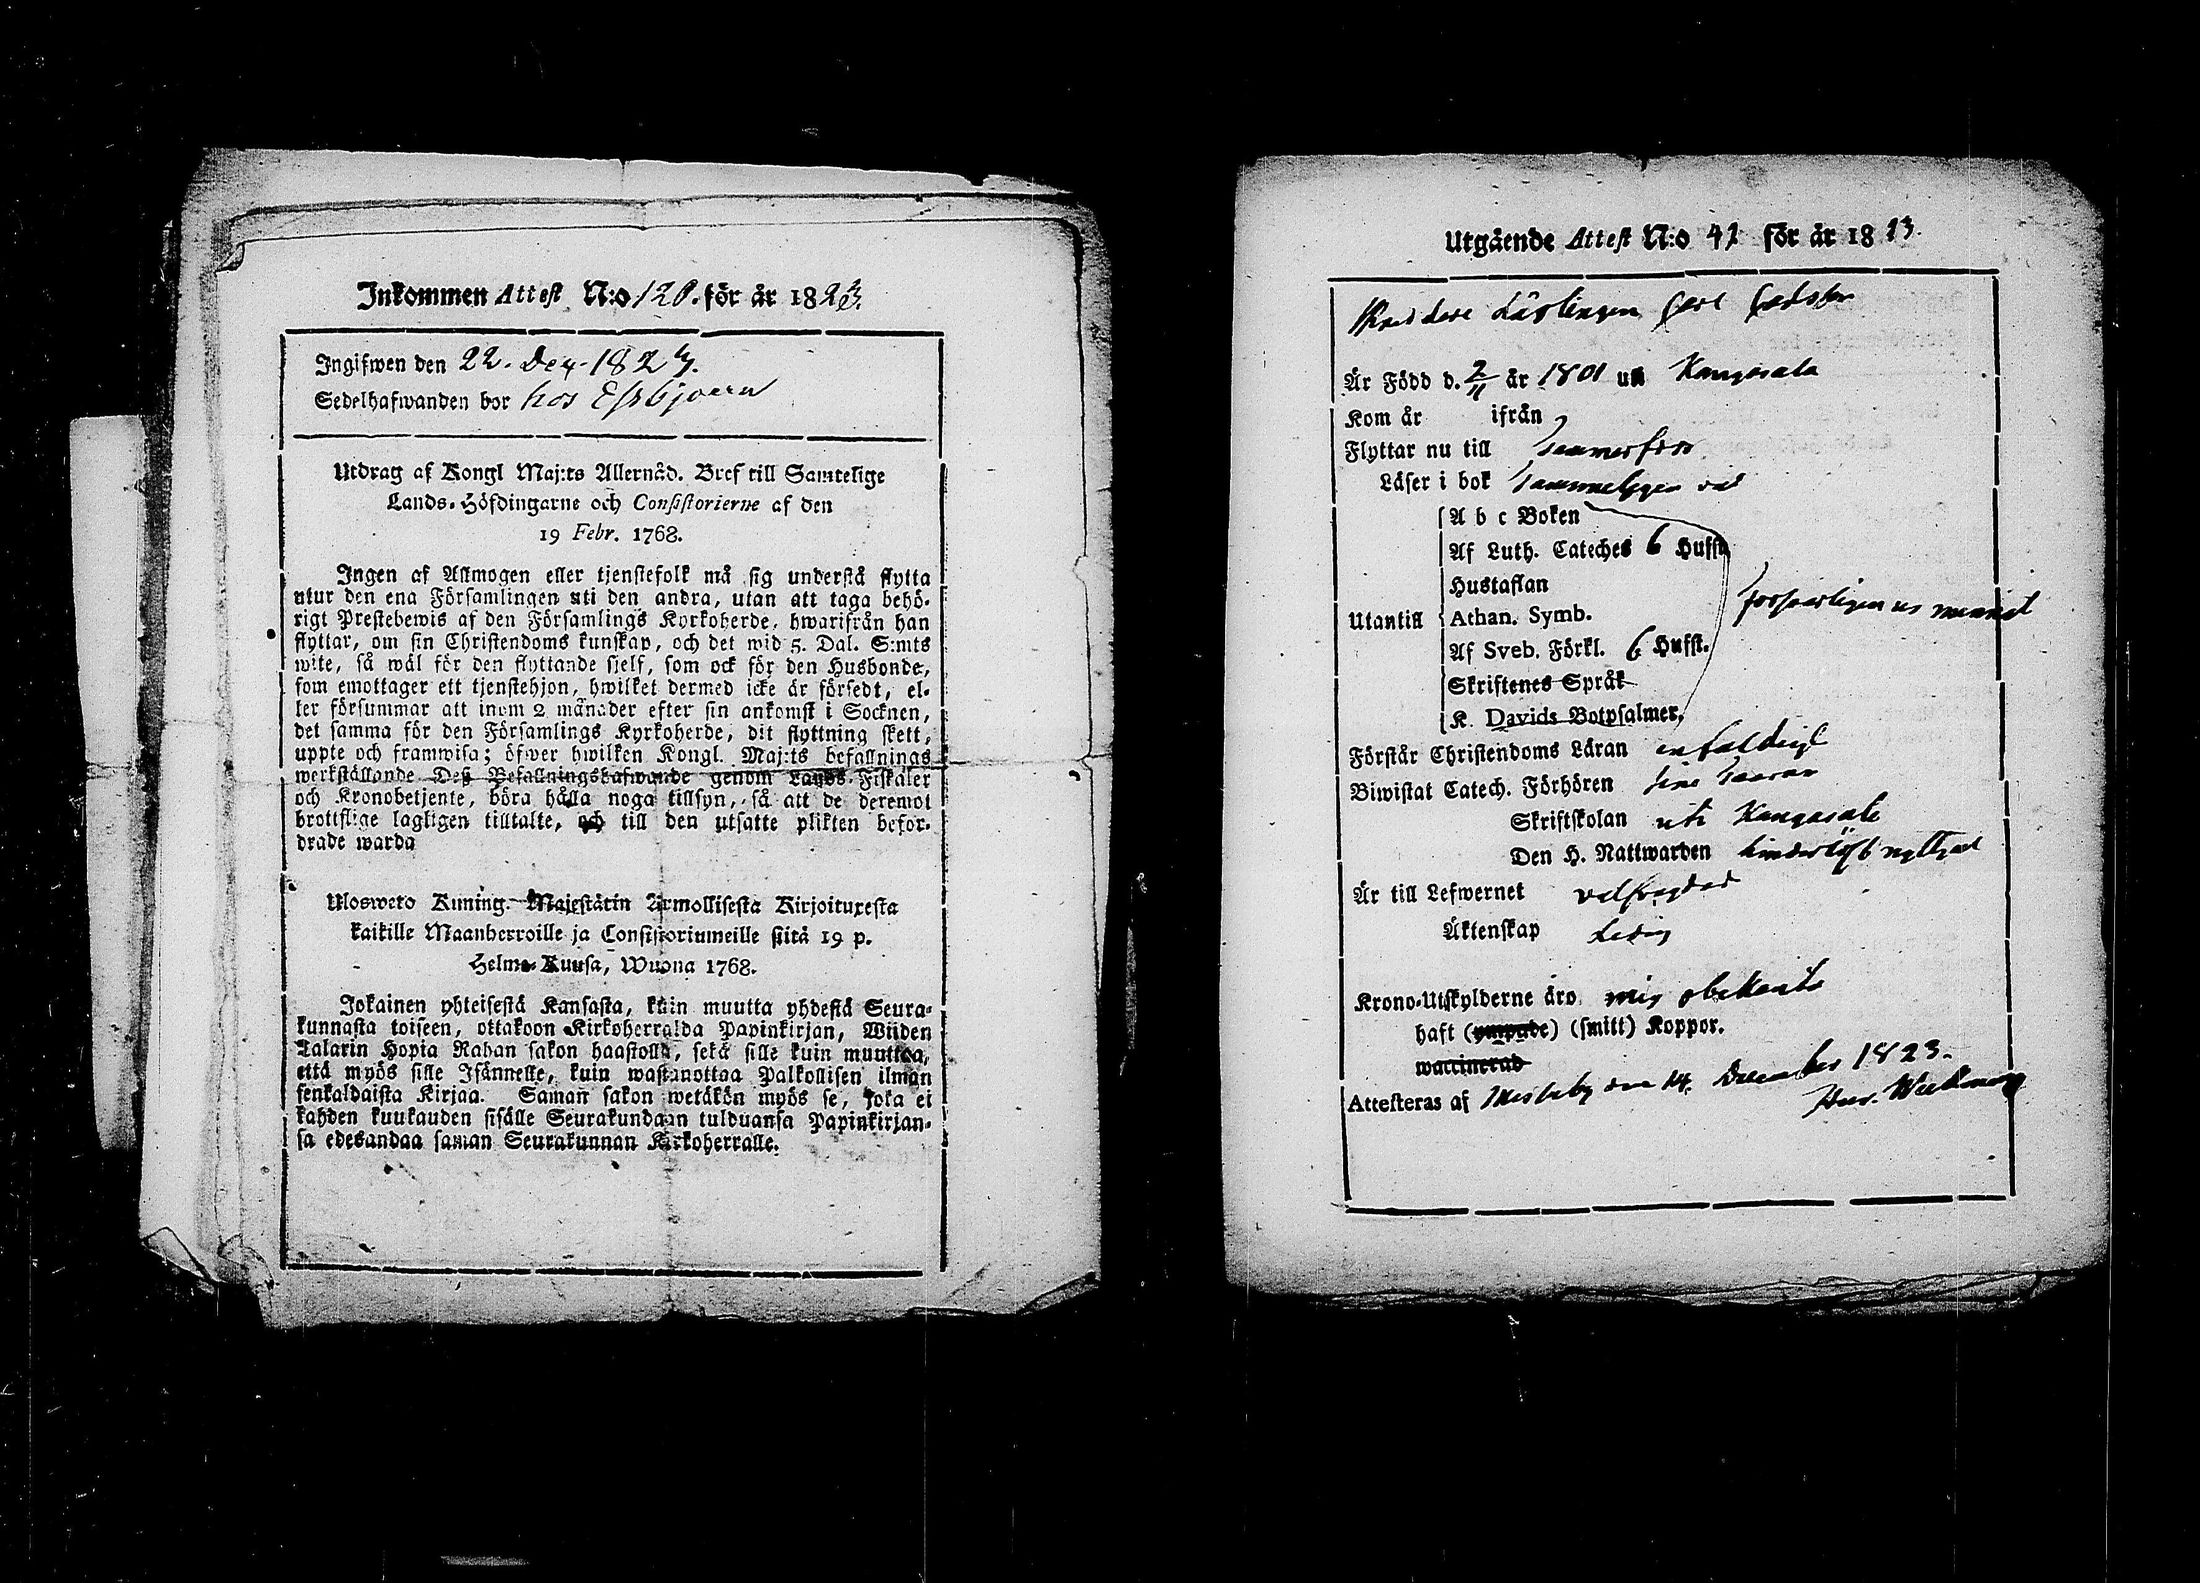 Inkommen Attest N:o 120. för år 1823.
Ingifwen den 22. Dec. 1823.
Sedelhafwanden bor hos Essbjoern
Utdrag af Kongl Maj:ts Allernåd. Bref till Samtelige
Lands-Höfdingarne och Consistorierne af den
19 Febr. 1768.
Ingen af Allmogen eller tjenstefolk må sig understå flytta
utur den ena Församlingen uti den andra, utan att taga behö-
rigt Prestebewis af den Församlings Kyrkoherde, hwarifrån han
flyttar, om sin Christendoms kunskap, och det wid 5. Dal. S:mts
wite, så wäl för den flyttande sjelf, som ock för den Husbonde,
som emottager ett tjenstehjon, hwilket dermed icke är försedt, el-
ler försummar att inom 2 månader efter sin ankomst i Socknen,
det samma för den Församlings Kyrkoherde, dit flyttning skett,
uppte och framwisa; öfwer hwilken Kongl. Maj:ts befallnings
werkställande Deß Befallningshafwande genom Lands-Fiskaler
och Kronobetjente, böra hålla noga tillsyn, så att de deremot
brottslige lagligen tilltalte, och till den utsatte plikten befor-
drade warda
Ulosweto Kuning. Majestätin Armollisesta Kirjoituxesta
kaikille Maanherroille ja Consistoriumeille siitä 19 p.
Helme-Kuusa, Wuona 1768.
Jokainen yhteisestä Kansasta, kuin muutta yhdestä Seura-
kunnasta toiseen, ottakoon Kirkoherralda Papinkirjan, Wiiden
Talarin Hopia Rahan sakon haastolla, sekä sille kuin muuttaa,
että myös sille Isännelle, kuin wastanottaa Palkollisen ilman
senkaldaista Kirjaa. Saman sakon wetäkön myös se, joka ei
kahden kuukauden sisälle Seurakundaan tulduansa Papinkirjan-
sa edesandaa saman Seurakunnan Kirkoherralle.
Utgående Attest N:o 42 för år 1823.
Lärlingen Carl
Är Född d. 2/11 år 1801 uti Kangasala
Kom år ifrån
Flyttar nu till Tammerfors
Läser i bok
A b c Boken
Af Luth. Cateches 6 Hufst.
Hustaflan
Utantill Athan. Symb.
Af Sveb. Förkl. 6 Hufst.
Skriftenes Språk
K. Davids Botpsalmer.
Förstår Christendoms Läran enfaldigt
Biwistat Catech. Förhören
Skriftskolan uti Kangasala
Den H. Nattwarden
Är till Lefwernet välfrejdad
Äktenskap Ledig
Krono-Utskylderne äro mig obekante
haft (ympade) (smitt) Koppor.
waccinerad
Attesteras af Messuby den 14. December 1823.